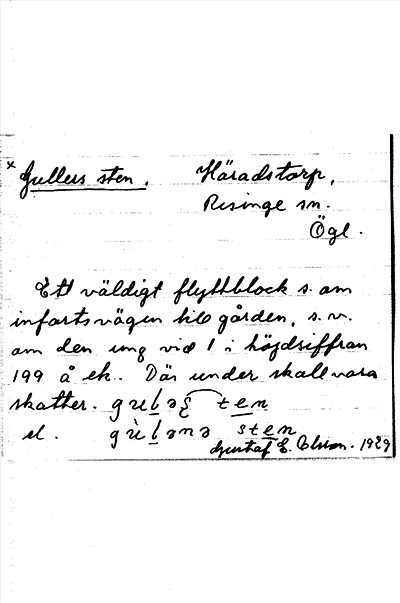 × Gullers sten. Häradstorp,
Risinge sn.
Ögl.
Ett väldigt flyttblock s. om
infartsvägen till gården, s.v.
om den ung vid 1 i höjdsiffran
199 å ek. Där under skall vara
skatter. gulə sten
el. gùlənə sten
Gustaf E. Olsson. 1929